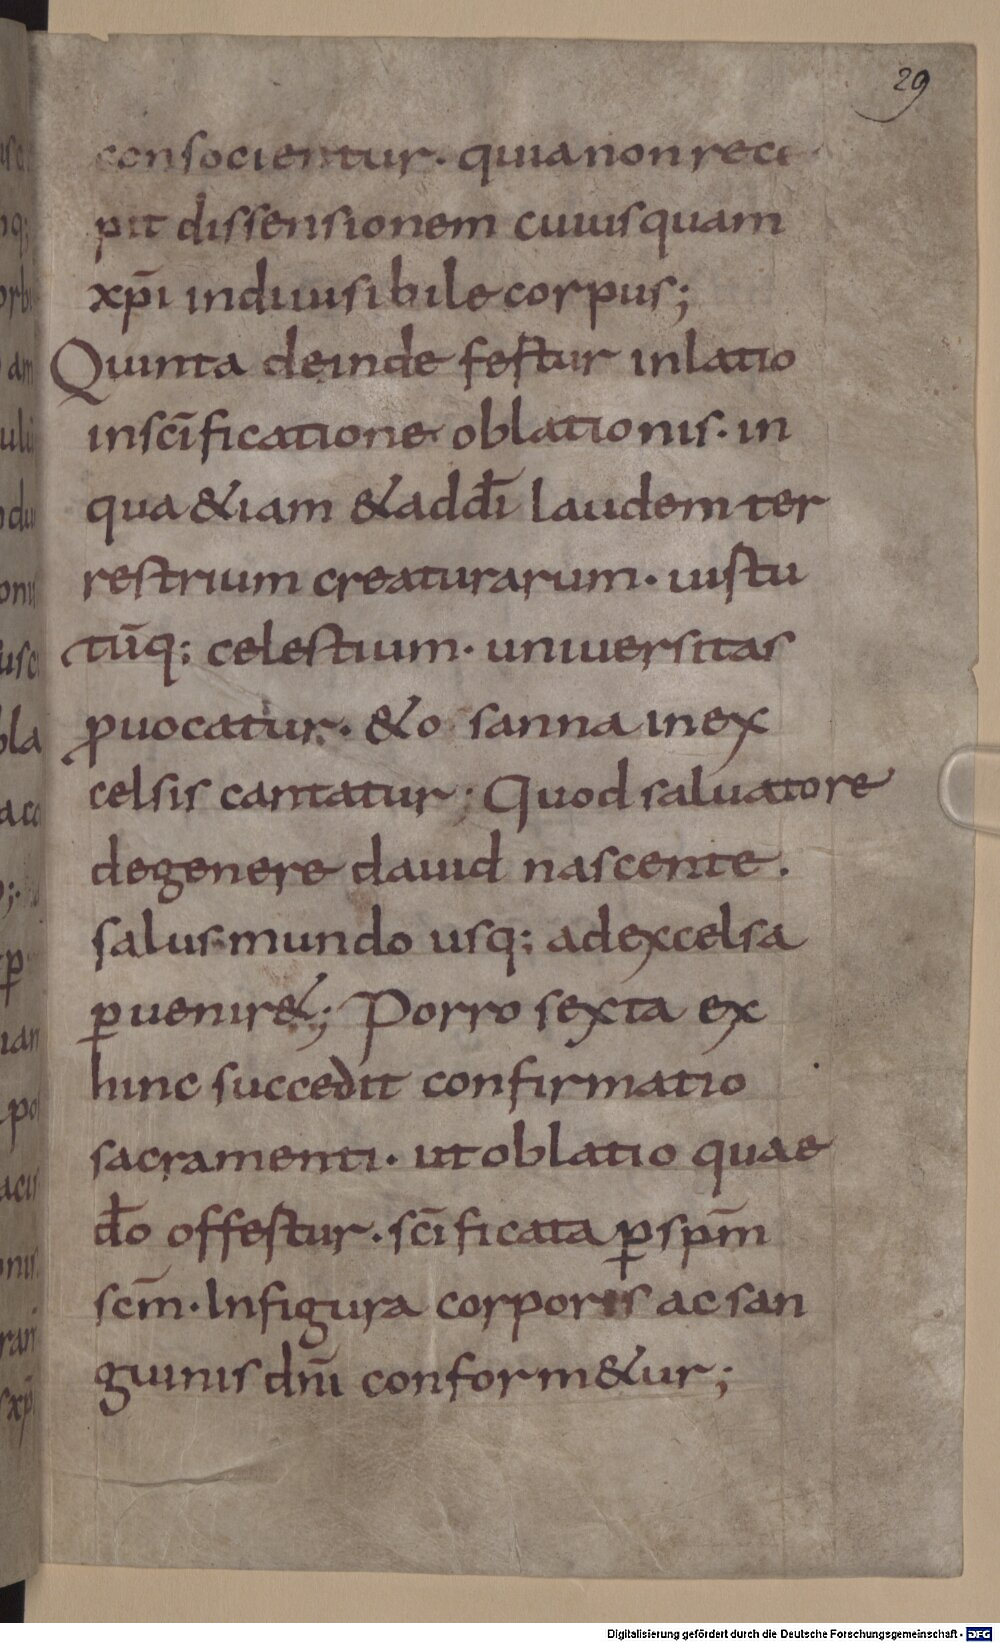 29
consocientur. quia non rece
pit dissensionem cuiusquam
xp̄i indiuisibile corpus;
Quinta deinde festur inlatio
in scīficatione oblationis. in
qua &iam & ad dī laudem ter
restrium creaturarum. uistu
tūq; celestium. uniuersitas
ꝓuocatur. & osanna in ex
celsis cantatur; Quod saluatore
de genere dauid nascente.
salus mundo usq; ad excelsa
ꝑuenir&; Porro sexta ex
hinc succedit confirmatio
sacramenti. ut oblatio quae
dō offestur. scīficata ꝑ spm̄
scm̄. In figura corporis ac san
guinis dnī conform&ur;
Digitalisierung gefördert durch die Deutsche Forschungsgemeinschaft - DFG